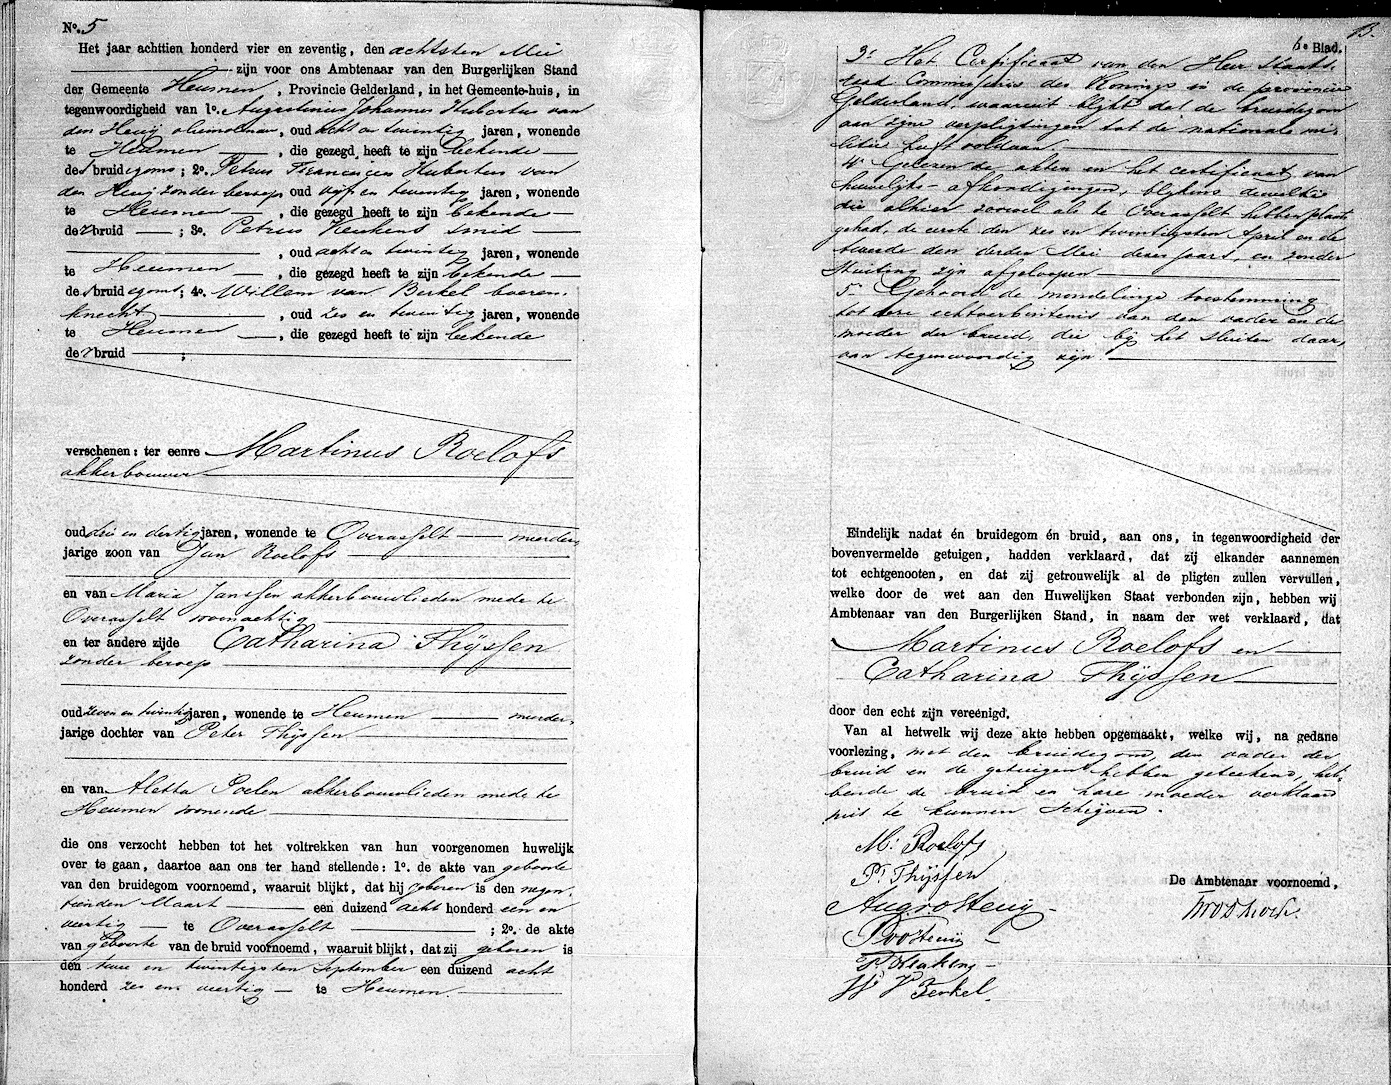 No. 5
Het jaar achttien honderd vier en zeventig, den achtsten Mei
zijn voor ons Ambtenaar van den Burgerlijken Stand
der Gemeente Heumen, Provincie Gelderland, in het Gemeente-huis, in
tegenwoordigheid van 1o. Augustinus Johannes Hubertus van
den Heuij oliemolenaar, oud acht en twintig jaren, wonende
te Heumen, die gezegd heeft te zijn bekende
des bruidegoms; 2o. Petrus Franciscus Hubertus van
den Heuij zonder beroep oud vijf en twintig jaren, wonende
te Heumen, die gezegd heeft te zijn bekende
der bruid; 3o. Petrus smid
, oud acht en twintig jaren, wonende
te Heumen, die gezegd heeft te zijn bekende
des bruidegoms; 4o. Willem van Berkel boeren-
knecht, oud zes en twintig jaren, wonende
te Heumen, die gezegd heeft te zijn bekende
der bruid;
verschenen: ter eenre Martinus Roelofs
akkerbouwer
oud drie en dertig jaren, wonende te Overasselt meerder-
jarige zoon van Jan Roelofs
en van Maria Janssen akkerbouwlieden mede te
Overasselt woonachtig
en ter andere zijde Catharina Thijssen
zonder beroep
oud zeven en twintig jaren, wonende te Heumen meerder-
jarige dochter van Peter Thijssen
en van Aletta Poelen akkerbouwlieden mede te
Heumen wonende
die ons verzocht hebben tot het voltrekken van hun voorgenomen huwelijk
over te gaan, daartoe aan ons ter hand stellende: 1o. de akte van geboorte
van den bruidegom voornoemd, waaruit blijkt, dat hij geboren is den negen-
tienden Maart een duizend acht honderd een en
veertig te Overasselt; 2o. de akte
van geboorte van de bruid voornoemd, waaruit blijkt, dat zij geboren is
den twee en twintigsten September een duizend acht
honderd zes en veertig te Heumen.
6e Blad.
3o. Het Certificaat van den Heer Staats-
raad Commissaris des Konings in de provincie
Gelderland, waaruit blijkt dat de bruidegom
aan zijne verpligtingen tot de nationale mi-
litie heeft voldaan.
4o Gelezen de akten en het certificaat van
huwelijks-afkondigingen, blijkens dewelke
die alhier zoowel als te Overasselt hebben plaats
gehad, de eerste den zes en twintigsten April en de
tweede den derden Mei dezes jaars, en zonder
stuiting zijn afgeloopen
5o Gehoord de mondelinge toestemming
tot deze echtverbintenis van den vader en de
moeder der bruid, die bij het sluiten daar-
van tegenwoordig zijn.
Eindelijk nadat én bruidegom én bruid, aan ons, in tegenwoordigheid der
bovenvermelde getuigen, hadden verklaard, dat zij elkander aannemen
tot echtgenooten, en dat zij getrouwelijk al de pligten zullen vervullen,
welke door de wet aan den Huwelijken Staat verbonden zijn, hebben wij
Ambtenaar van den Burgerlijken Stand, in naam der wet verklaard, dat
Martinus Roelofs en
Catharina Thijssen
door den echt zijn vereenigd.
Van al hetwelk wij deze akte hebben opgemaakt, welke wij, na gedane
voorlezing, met den bruidegom, den vader der
bruid en de getuigen hebben geteekend, heb-
bende de bruid en hare moeder verklaard
niet te kunnen schrijven.
M: Roelofs
P: Thijssen
De Ambtenaar voornoemd,
W V Berkel.